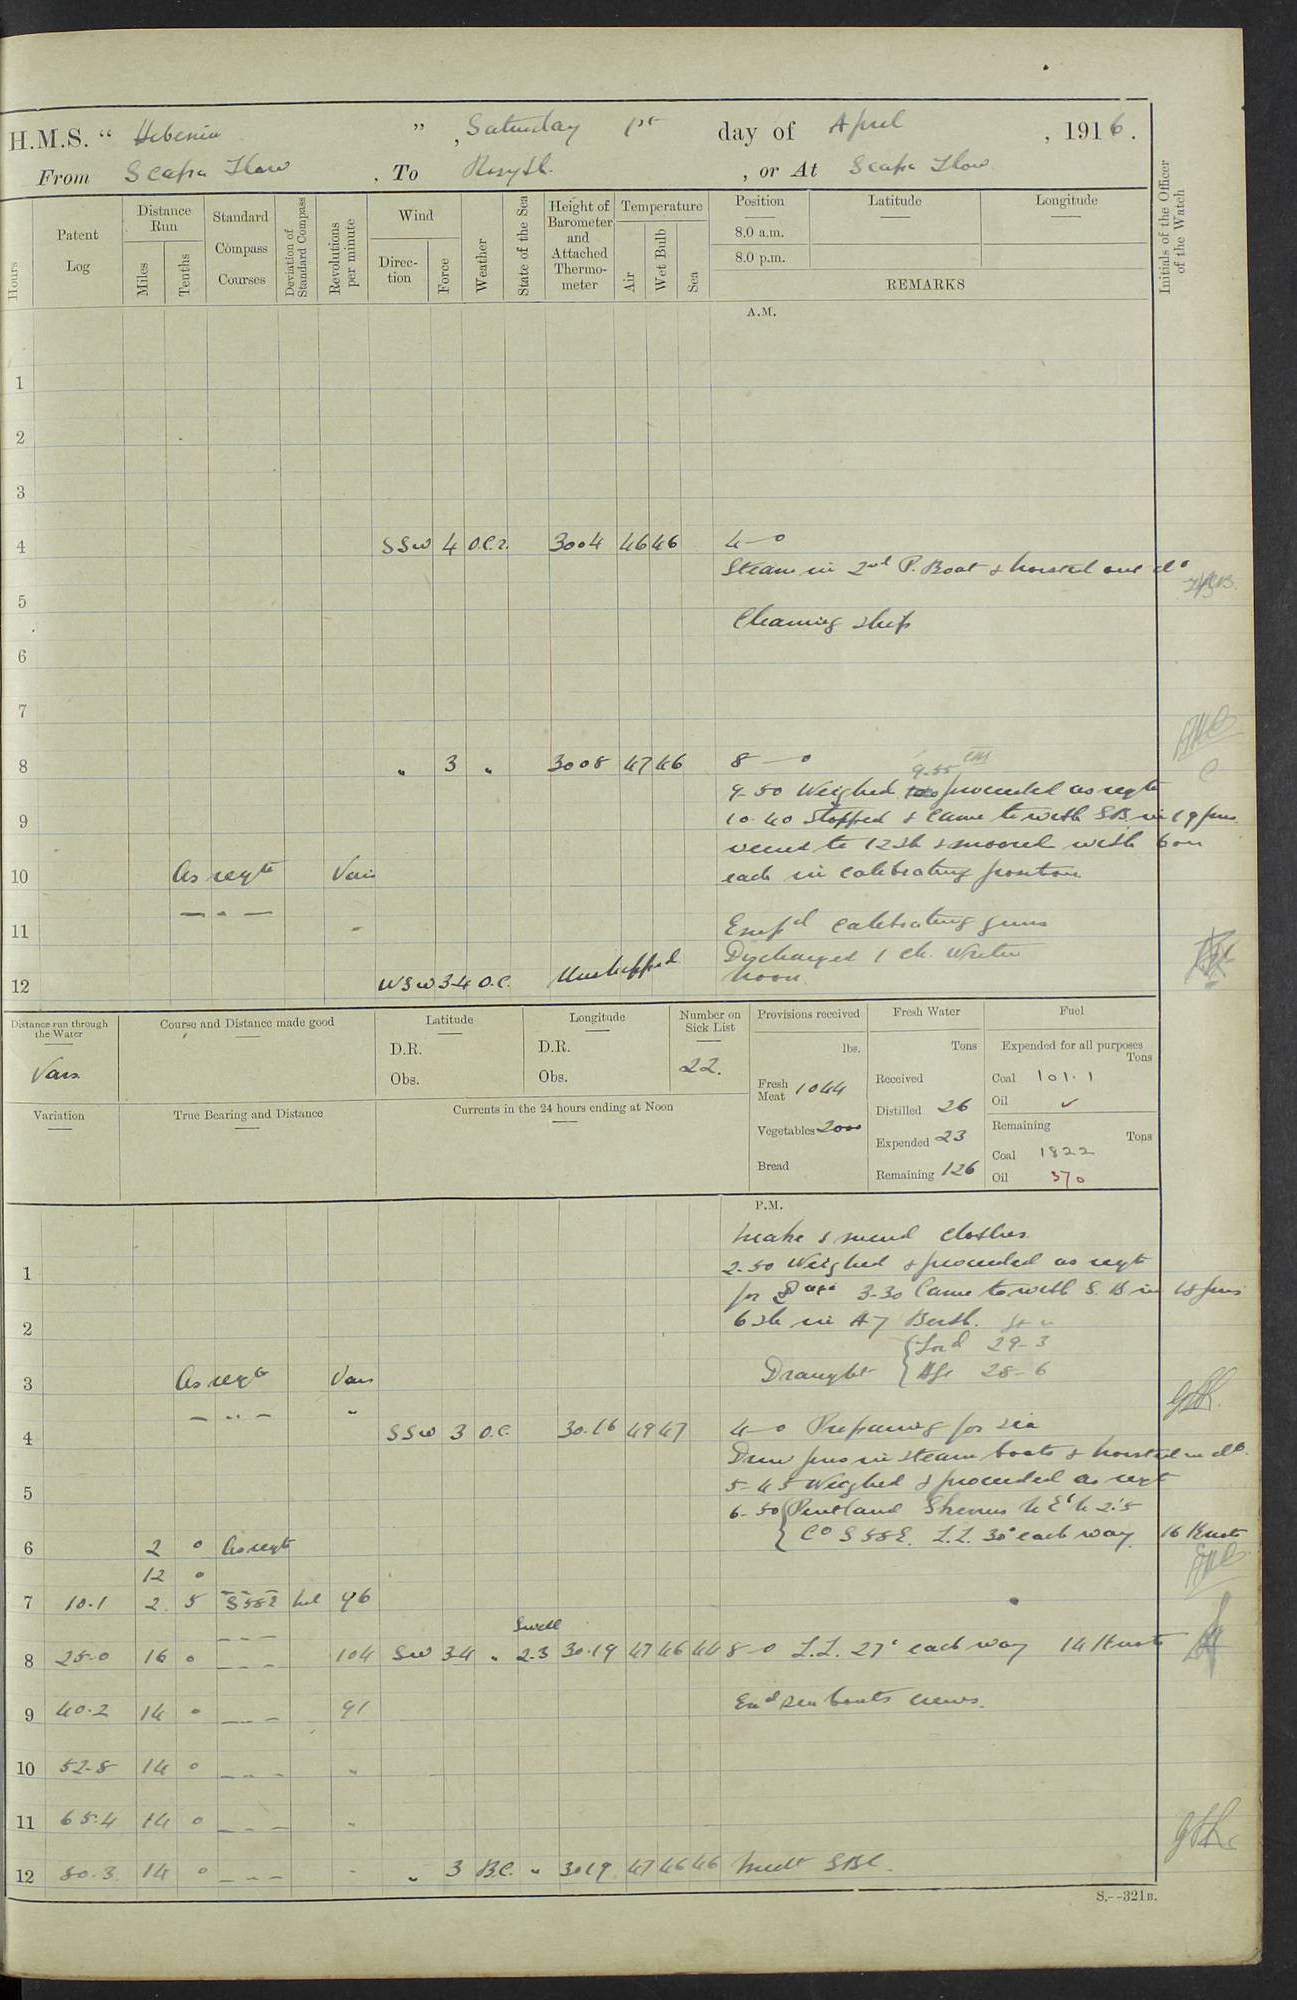 H.M.S. " Hibernia " , Saturday 1st day of April , 1916 .
From Scapa Flow , To Rosyth. , or At Scapa Flow
Hours
Patent Log
Distance Run
Miles
Tenths
Standard Compass Courses
Deviation of Standard Compass
Revolutions per minute
Wind
Direc-tion
Force
Weather
State of the Sea
Height of Barometer and Attached Thermo-meter
Temperature
Air
Wet Bulb
Sea
Position
8.0 a.m.
8.0 p.m.
Latitude
Longitude
REMARKS
Initials of the Officer of the Watch
A.M.
1
2
3
4 SSW 4 O.C.R. 3004 46 46 4—0
Steam in 2nd P. Boat & hoisted out do
5
Cleaning ship
6
7
8 " 3 " 3008 47 46 8—0
9-55
9-50 Weighed proceeded as reqte
9 10-40 Stopped & Came to with SB in 19 fms
veered to 12 sh & moored with 6 on
10 As reqte Vars each in calibrating position
— " —
11 " Emp'd calibrating guns
Discharged 1 Ch. Writer
12 WSW 3-4 O.C. Unshipped Noon
Distance run through the Water
Vars
Course and Distance made good
Latitude
D.R.
Obs.
Longitude
D.R.
Obs.
Number on Sick List
22.
Provisions received
lbs.
Fresh Meat 1044
Vegetables 2000
Bread
Fresh Water
Tons
Received
Distilled 26
Expended 23
Remaining 126
Fuel
Expended for all purposes
Tons
Coal 101.1
Oil ✓
Remaining
Tons
Coal 1822
Oil 370
Variation
True Bearing and Distance
Currents in the 24 hours ending at Noon
P.M.
Make & mend clothes
1 2-50 Weighed & proceeded as reqte
for 3-30 Came to with S.B in 18 fms
2 6 sh in A7 Berth.
Draught { Ford 29-3
3 As reqte Vars { Aft 28-6
— " — "
4 SSW 3 O.C. 30.16 49 47 4—0 Preparing for sea
Drew fires in steam boats & hoisted in do.
5 5-45 Weighed & proceeded as reqte
6-50 { Pentland Skerries N E'N 2'.5
6 2 0 As reqte { Co S 58 E. L.L. 30° each way. 16 Knots
12 0
7 10.1 2 5 S 58 E Nil 96
— " —
Swell
8 25.0 16 0 — " — 104 SW 3-4 " 2.3 30.19 47 46 44 8—0 L.L. 27° each way 14 Knots
9 40.2 14 0 — " — 91 Exd sea boats crews.
10 52.8 14 0 — " — "
11 65.4 14 0 — " — "
12 80.3 14 0 — " — " " 3 B.C. " 3019 47 46 46 Midt
S.--321B.